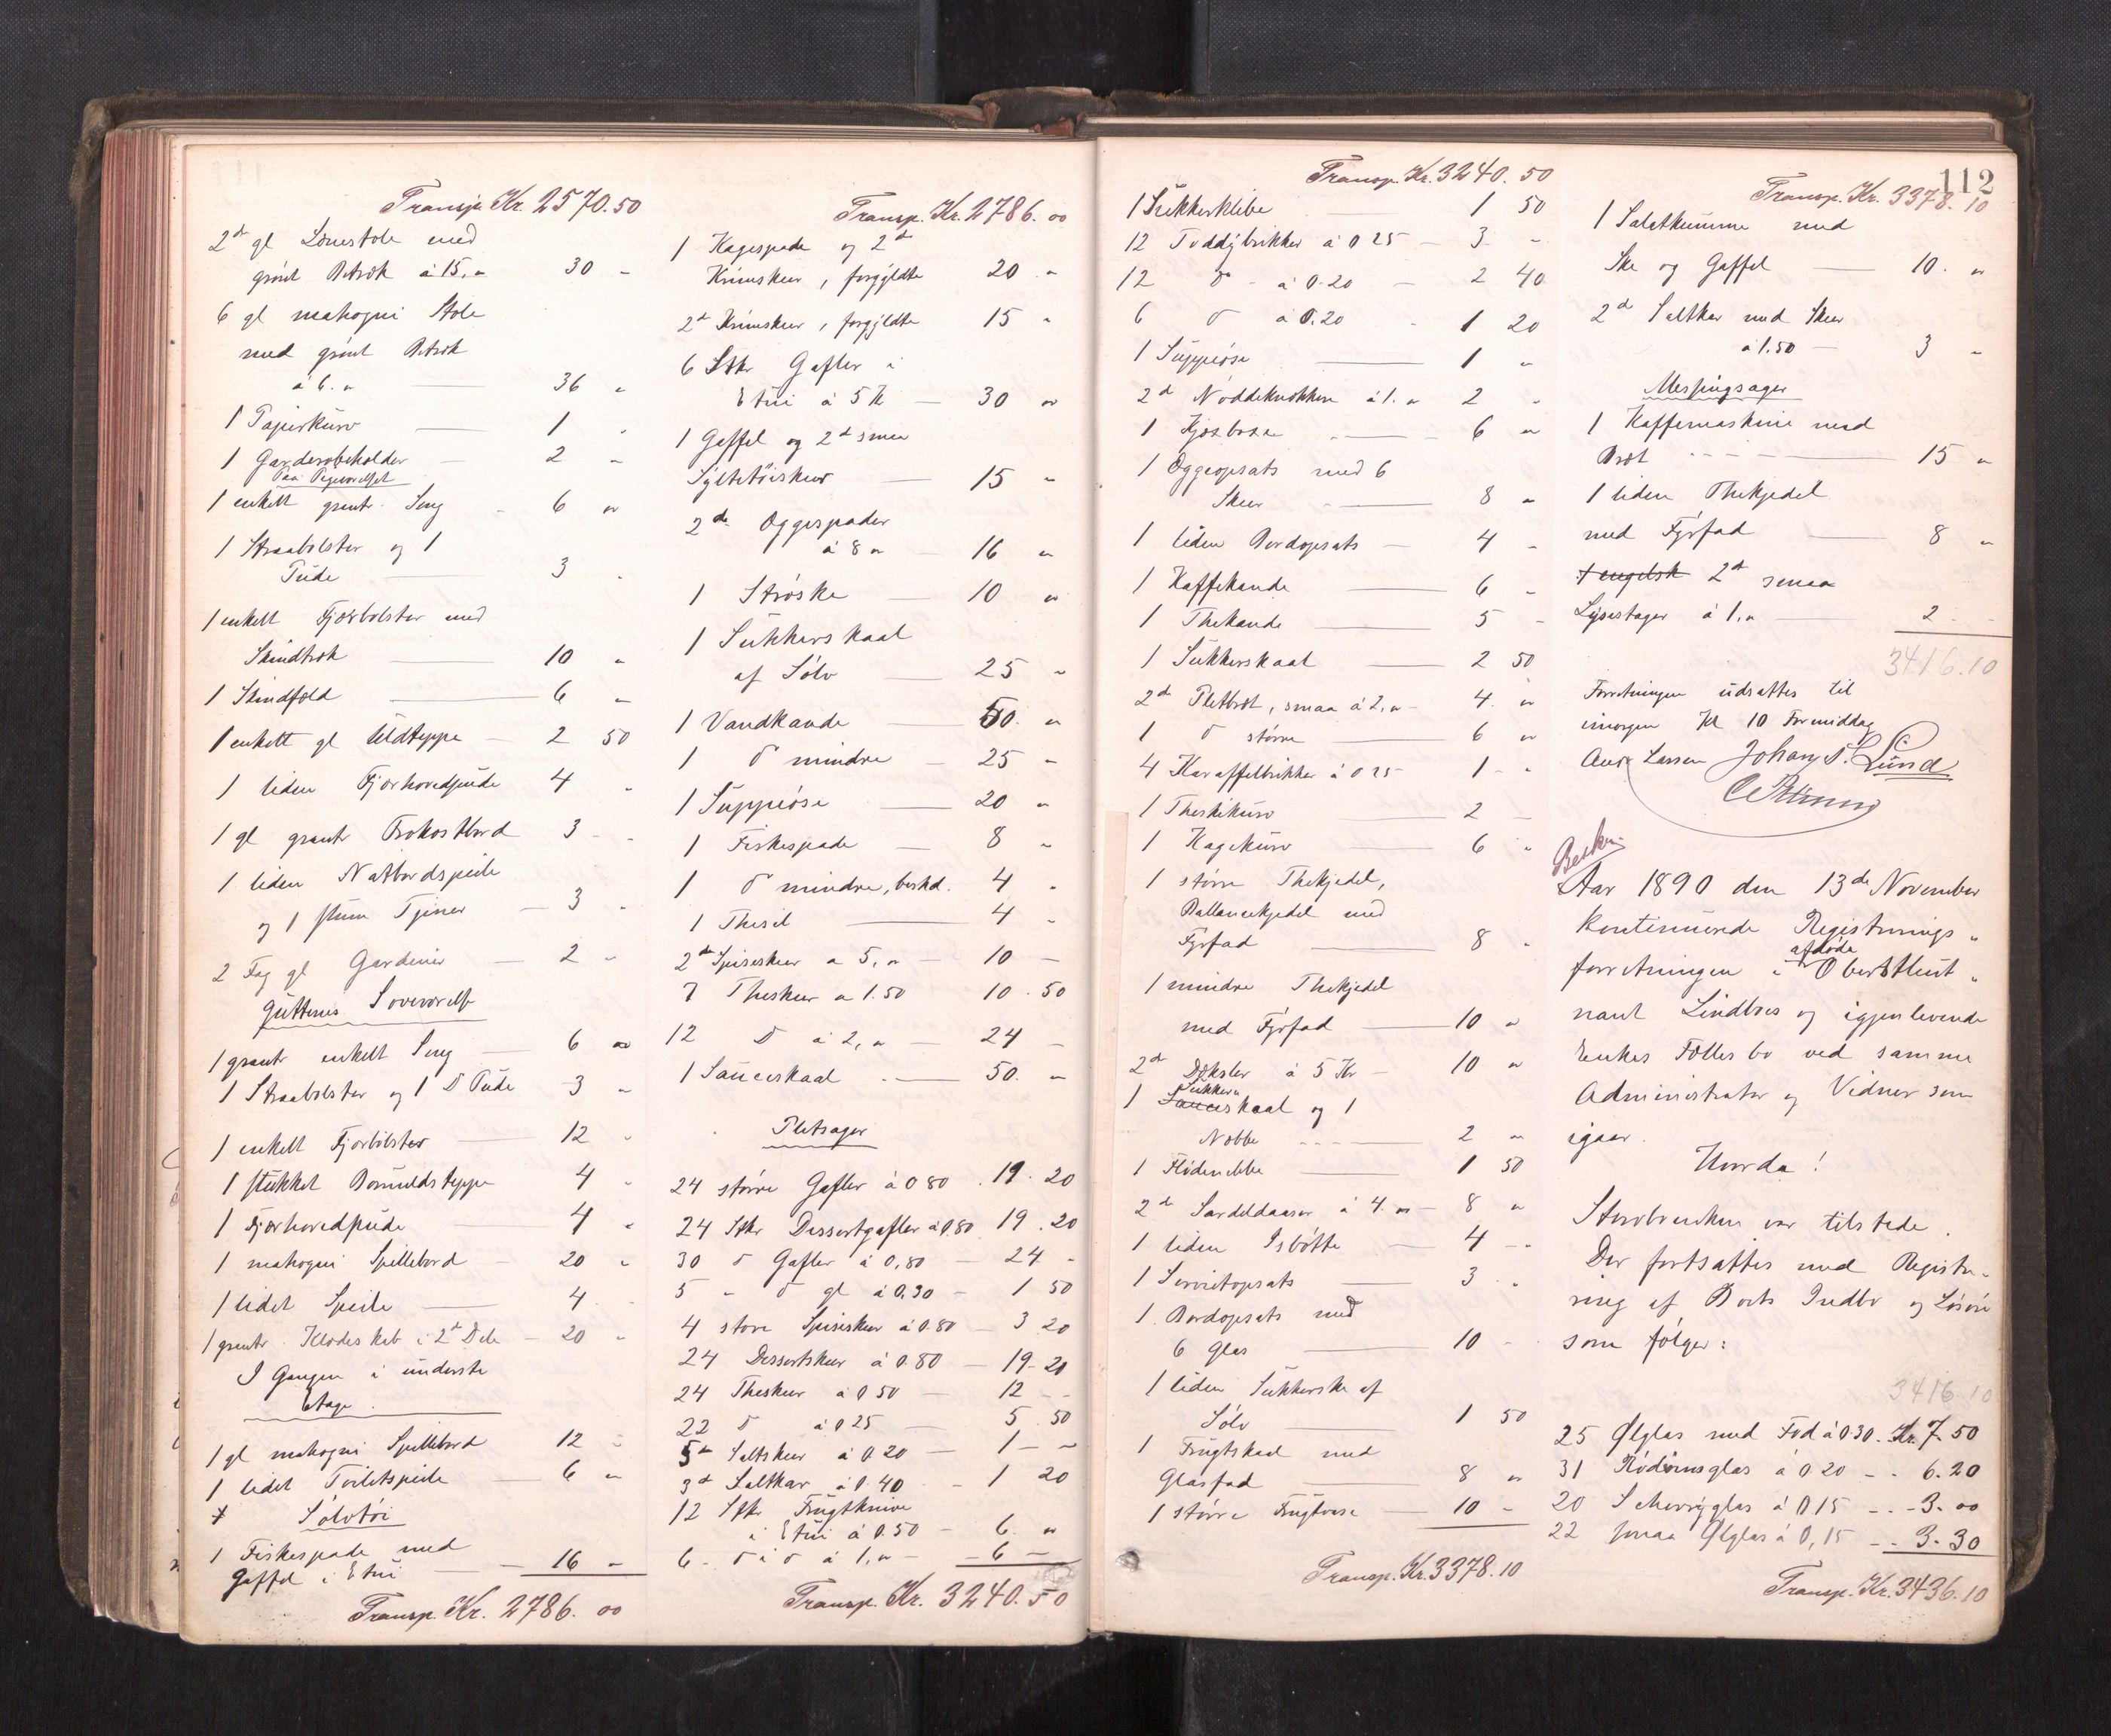 Transp. Kr. 2570.50
2de gl Lænestole med
grönt Betræk à 15,"  30 "
6 gl mahogni Stole
med grönt Betræk
à 6. "  36 "
1 Papirkurv  1 "
1 Garderobeholder  2 "
Paa Pigeværelset
1 enkelt grantr. Seng  6 "
1 Straabolster og 1
Pude  3 "
1 enkelt Fjærbolster med
Skindtræk  10 "
1 Skindfæld  6 "
1 enkelt gl Uldteppe  2 50
1 liden Fjærhovedpude  4 "
1 gl grantr Frokostbord  3 "
1 liden Natbordspeile
og 1 stum Tjener  3 "
2 Fag gl Gardiner  2 "
Gutternes Soveværelse
1 grantr enkelt Seng  6 "
1 Straabolster og 1 Do Pude  3 "
1 enkelt Fjærbolster  12 "
1 stukket Bomuldsteppe  4 "
1 Fjærhovedpude  4 "
1 mahogni Spillebord  20 "
1 lidet Speile  4 "
1 grantr. Klædeskab i 2de Dele  20 "
I Gangen i underste
Etage.
1 gl mahogni Spillebord  12 "
1 lidet Toiletspeile  6 "
Sølvtøi
1 Fiskespade med
Gaffel i Etui  16 "
Transp. Kr. 2786. 00
Transp. Kr. 2786. 00
1 Kagespade og 2de
Krumskeer, forgyldte  20 "
2de Krumskeer, forgyldte  15 "
6 Stkr Gafler i
Etui à 5 Kr  30 "
1 Gaffel og 2de smaa
Syltetöiskeer  15 "
2de Æggespader
à 8 "  16 "
1 Ströske  10 "
1 Sukkerskaal
af Sölv  25 "
1 Vandkande  50. "
1 do mindre  25 "
1 Suppeöse  20 "
1 Fiskespade  8 "
1 do mindre, beskd.  4 "
1 Thesil  4 "
2de Spiseskeer a 5, "  10 "
7 Theskeer a 1.50  10.50
12 do à 2, "  24 "
1 Sauceskaal  50. "
Pletsager
24 större Gafler à 0 80  19. 20
24 Stkr Dessertgafler à 0.80  19. 20
30 do Gafler à 0,80  24 "
5 " do gl à 0.30  1 50
4 store Spiseskeer à 0.80  3 20
24 Dessertskeer à 0.80  19.20
24 Theskeer à 0 50  12 "
22 do à 0 25  5 50
5 Saltskeer à 0 20  1 "
3de Saltkar à 0 40  1 20
12 Stkr Frugtknive
i Etui à 0.50  6 "
6 - do i do à 1, "  6 "
Transp. Kr. 3240. 50
Transp. Kr. 3240. 50
1 Sukkerklibe  1 50
12 Toddybrikker à 0 25  3 "
12 do à 0.20  2 40
6 do à 0.20  1 20
1 Suppeöse  1 "
2de Nöddeknækkere à 1. "  2 "
1 Kjæxbøsse  6 "
1 Æggeopsats med 6
Skeer  8 "
1 liden Bordopsats  4 "
1 Kaffekande  6 "
1 Thekande  5 "
1 Sukkerskaal  2 50
2de Pletbræt, smaa à 2, "  4 "
1 do större  6 "
4 Karaffelbrikker à 0 25  1 "
1 Theskekurv  2 "
1 Kagekurv  6 "
1 större Thekjedel,
Ballancekjedel med
Fyrfad  8 "
1 mindre Thekjedel
med Fyrfad  10 "
2de Dæksler à 5 Kr  10 "
1 Sukkerskaal og 1
Nebbe  2 "
1 Flödenebbe  1 50
2de Sardeldaaser à 4. "  8 "
1 liden Isbøtte  4 "
1 Servietopsats  3 "
1 Bordopsats med
6 Glas  10 "
1 liden Sukkerske af
Sölv  1 50
1 Frugtskaal med
Glasfad  8 "
1 större Frugtvase  10 "
Transp. Kr. 3378.10
112
Transp. Kr. 3378. 10
1 Salatkumme med
Ske og Gaffel  10. "
2de Saltkar med Skeer
à 1.50  3 "
Messingsager
1 Kaffemaskine med
Bræt  15 "
1 liden Thekjedel
med Fyrfad  8 "
1 engelsk 2de smaa
Lysestager à 1, "  2 "
3416.10
Forretningen udsattes til
imorgen Kl 10 Formiddag
Andr Larsen Johan S. Lund
Aar 1890 den 13de November
kontinuerede Registrerings "
forretningen i afdøde Oberstleut "
nant Lindboes og igjenlevende
Enkes Fællesbo ved samme
Administrator og Vidner som
igaar.
Hvorda!
Stervboenken var tilstede.
Der fortsattes med Registre-
ring af Boets Indbo og Lösöre
som fölger:
3416.10
25 Ølglas med Fod à 0.30. Kr. 7.50
31 Rödvinsglas à 0.20 - . 6.20
20 Scherryglas à 0 15 - . 3. 00
22 smaa Ølglas à 0,15 - . 3.30
Transp. Kr. 3436.10